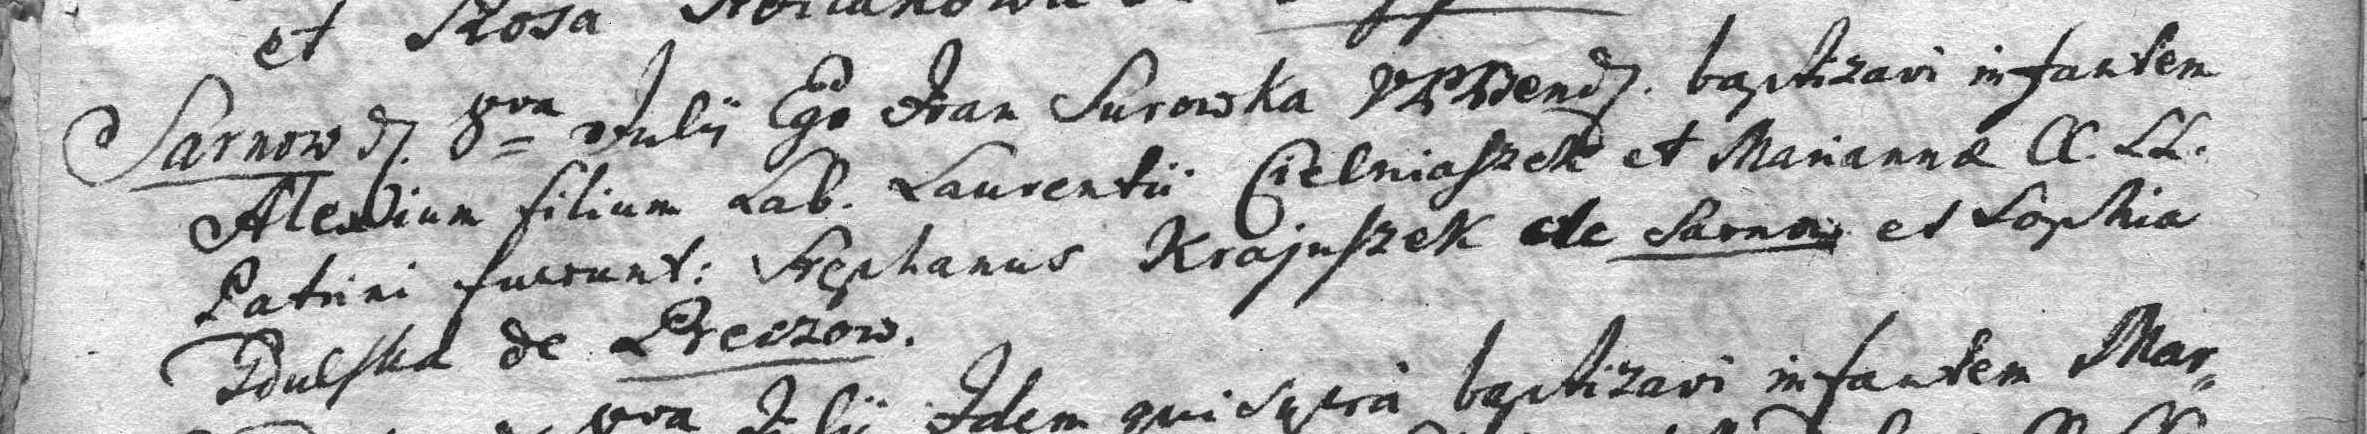 et Rosa
Sarnow d. 8va Julij Ego Fran Surowka VPBend. baptizavi infantem
Alexium filium Lab. Laurentii Cielniaszek et Mariannæ CC. LL.
Patrini fuerunt: Stephanus Krajuszek de Sarnow et Sophia
Dulska de Preczow.
8va Julij Idem qui supra baptizavi infantem Mar,,